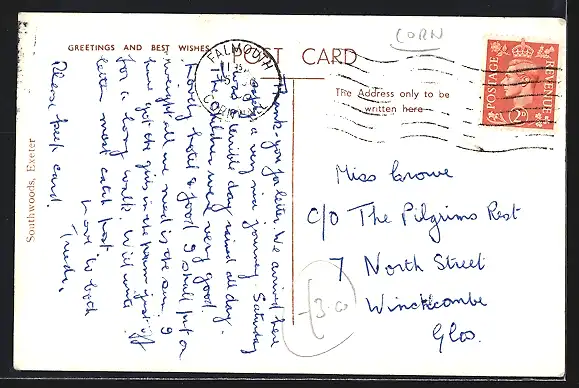 GREETINGS AND BEST WISHES
POST CARD
CORN
FALMOUTH
CORNWALL
POSTAGE
REVENUE
2D
The Address only to be
written here
Southwoods, Exeter
Thank you for letter. We arrived here
after a very nice journey. Saturday
was a terrible day rained all day.
The children were very good.
Lovely hotel & food I shall put on
weight all we need is the sun. I
have got the girls in the pram just off
for a long walk. Will write
letter must catch post.
Love to both
Trude.
Please keep card.
Miss Crowe
c/o The Pilgrims Rest
7 North Street
Winchcombe
Glos.
3.0